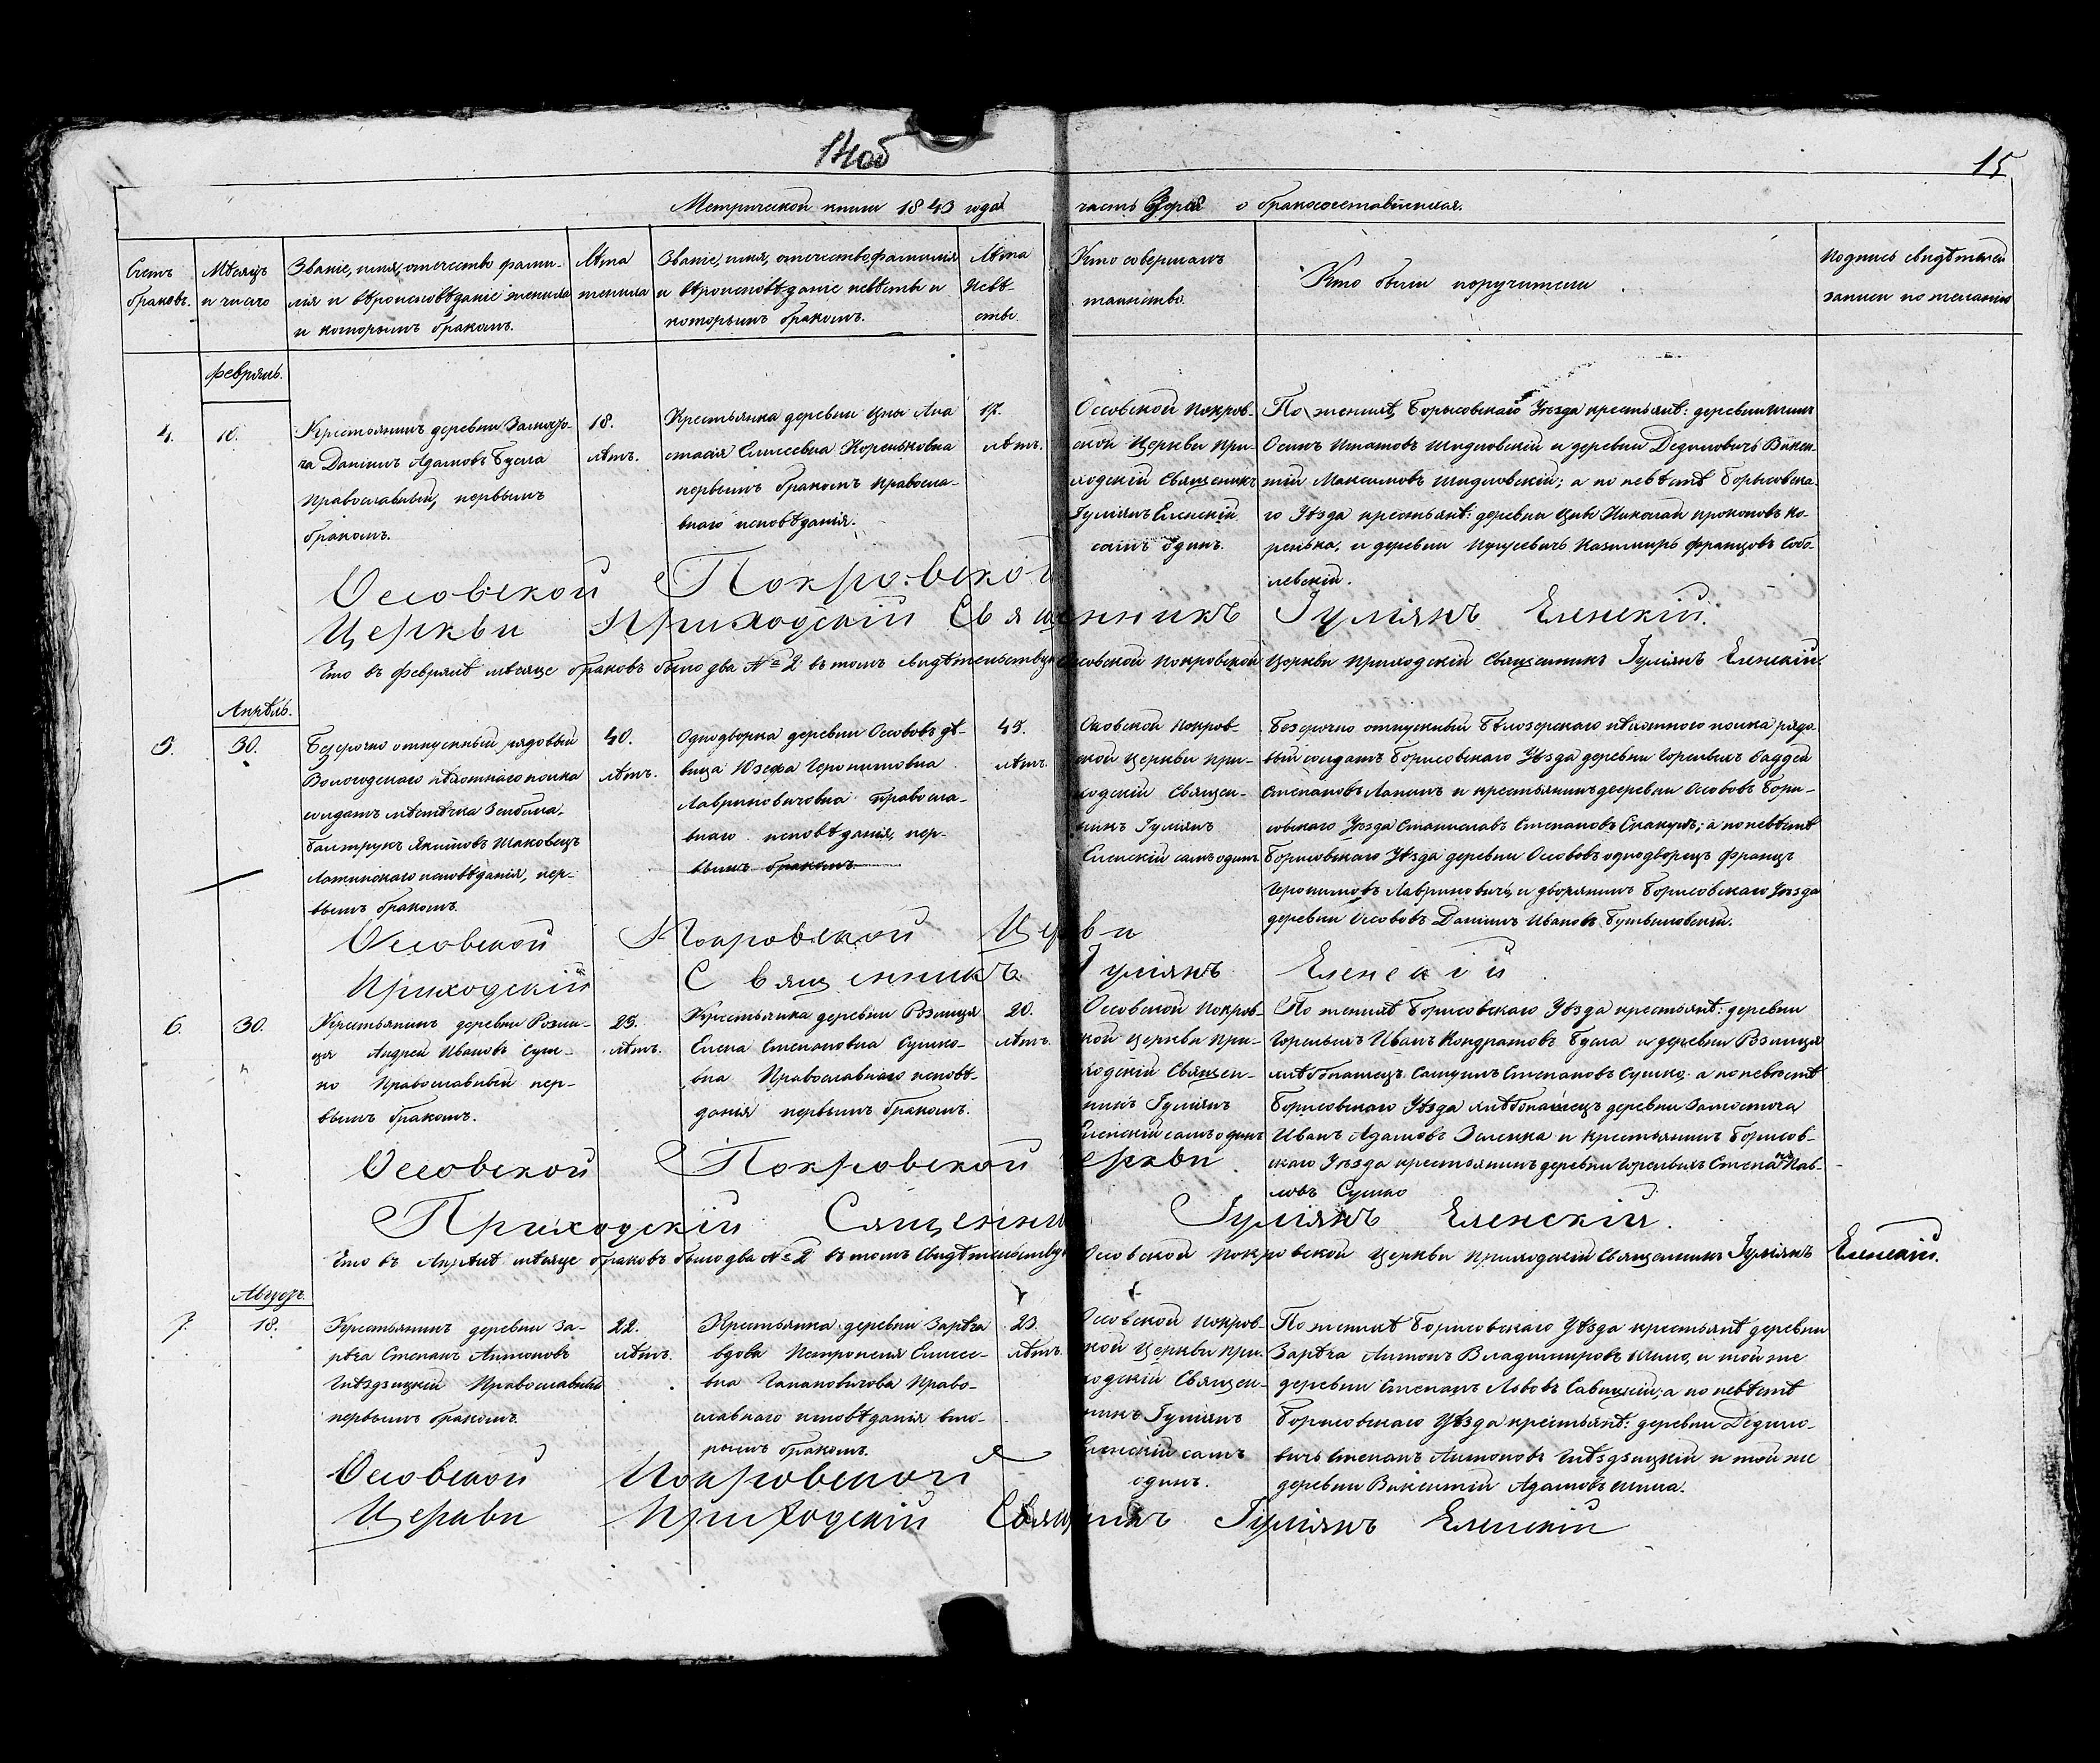 14об
15
Метрической книги 1843 года часть вторая о бракосочетавшихся.
Счетъ браковъ.
Мѣсяцъ и число
Званіе, имя, отчество фами-
лія и вѣроисповѣданіе жениха
и которымъ бракомъ.
Лѣта
жениха
Званіе, имя, отчество, фамилія
и вѣроисповѣданіе невѣсты и
которымъ бракомъ.
Лѣта
невѣ-
сты.
Кто совершалъ
таинство.
Кто были поручители
Подпись свидѣтелей
записи по желанію
Февраль.
4.
10.
Крестьянинъ деревни
ча Даніилъ Адамовъ Бусла
Православный, первымъ
бракомъ.
18.
лѣтъ.
Крестьянка деревни Цны Ана
стасія Елисеевна Кореньковна
первымъ бракомъ правосла-
внаго исповѣданія.
17.
лѣтъ.
Оссовской Покров-
ской Церкви При-
ходскій Священикъ
Іуліянъ Еленскій
самъ одинъ.
По женихѣ, Борисовскаго Уѣзда крестьянѣ: деревни
Осипъ Игнатовъ Шидловскій и деревни Дедиловичъ Викен-
тій Максимовъ Шидловскій; а по невѣстѣ Борисовска-
го Уѣзда крестьянѣ: деревни Цны Николай Прокоповъ Ко-
ренька, и деревни Казимиръ Францовъ Собо-
левскій.
Оссовской Покровской
Церкви Приходскій Священникъ Іуліянъ Еленскій.
Что въ Февралѣ мѣсяце браковъ было два № 2 въ томъ свидѣтельствую Оссовской Покровской Церкви Приходскій Священникъ Іуліянъ Еленскій
Апрѣль.
5.
30.
Безсрочно отпускный рядовый
Вологодскаго пѣхотнаго полка
солдатъ мѣстечка Зембина,
Балтрукъ Якимовъ Шаковецъ
Латинскаго исповѣданія, пер-
вымъ бракомъ.
40.
лѣтъ.
Однодворка деревни Оссововъ дѣ-
вица Юзефа Геронимовна
Лавриновичовна правосла-
внаго исповѣданія, пер-
вымъ бракомъ.
45.
лѣтъ.
Оссовской Покров-
ской Церкви При-
ходскій Священ-
никъ Іуліянъ
Еленскій самъ одинъ
Безсрочно отпускный Бѣлозерскаго пѣхотного полка рядо-
вый солдатъ Борисовскаго Уѣзда деревни Горелыхъ Фаддей
Степановъ Лапинъ и крестьянинъ деревни Оссововъ Бори-
совскаго Уѣзда Станиславъ Степановъ Скакунъ; а по невѣстѣ
Борисовскаго Уѣзда деревни Оссововъ однодворецъ Францъ
Геронимовъ Лавриновичъ, и дворянинъ Борисовскаго Уѣзда
деревни Оссововъ Даніилъ Ивановъ Бутвиловскій.
Оссовской Покровской Церкви
Приходскій Священникъ Іуліянъ Еленскій
6.
30.
Крестьянинъ деревни Розли-
ця Андрей Ивановъ Суш-
ко Православный пер-
вымъ бракомъ.
25.
лѣтъ.
Крестьянка деревни Взлиця
Елена Степановна Сушко-
вна Православнаго исповѣ-
данія первымъ бракомъ.
20.
лѣтъ.
Оссовской Покров-
ской Церкви При-
ходскій Священ-
никъ Іуліянъ
Еленскій самъ одинъ
По женихѣ Борисовскаго Уѣзда крестьянѣ: деревни
Горелыхъ Иванъ Кондратовъ Бусла и деревни Взлиця
хлѣбопашецъ Степановъ Сушко; а по невѣстѣ
Борисовскаго Уѣзда хлѣбопашецъ деревни Замосточа
Иванъ Адамовъ Зеленка и крестьянинъ Борисов-
скаго Уѣзда крестьянинъ деревни Горелыхъ Степанъ Пав-
ловъ Сушко
Оссовской Покровской Церкви
Приходскій Сященникъ Іуліянъ Еленскій.
Что въ Апрѣлѣ мѣсяце браковъ было два № 2 въ томъ свидѣтельствую Оссовской Покровской Церкви Приходскій Священникъ Іуліянъ Еленскій.
Августъ.
7.
18.
Крестьянинъ деревни За-
рѣча Степанъ Антоновъ
Гнѣздзицкій Православный
первымъ бракомъ.
22.
лѣтъ.
Крестьянка деревни Зарѣча
вдова Петронеля Елисее-
вна Гапановичова Право-
славнаго исповѣданія вто-
рымъ бракомъ.
23.
лѣтъ.
Оссовской Покров-
ской Церкви При-
ходскій Священ-
никъ Іуліянъ
Еленскій самъ
одинъ.
По женихѣ Борисовскаго Уѣзда крестьянѣ деревни
Зарѣча Антонъ Владимировъ и той же
деревни Степанъ Львовъ Савицкій; а по невѣстѣ
Борисовскаго Уѣзда крестьянѣ: деревни Дедило-
вичь Степанъ Антоновъ Гнѣздзицкій и той же
деревни Викентій Адамовъ
Оссовской Покровской
Церкви Приходскій Священникъ Іуліянъ Еленскій